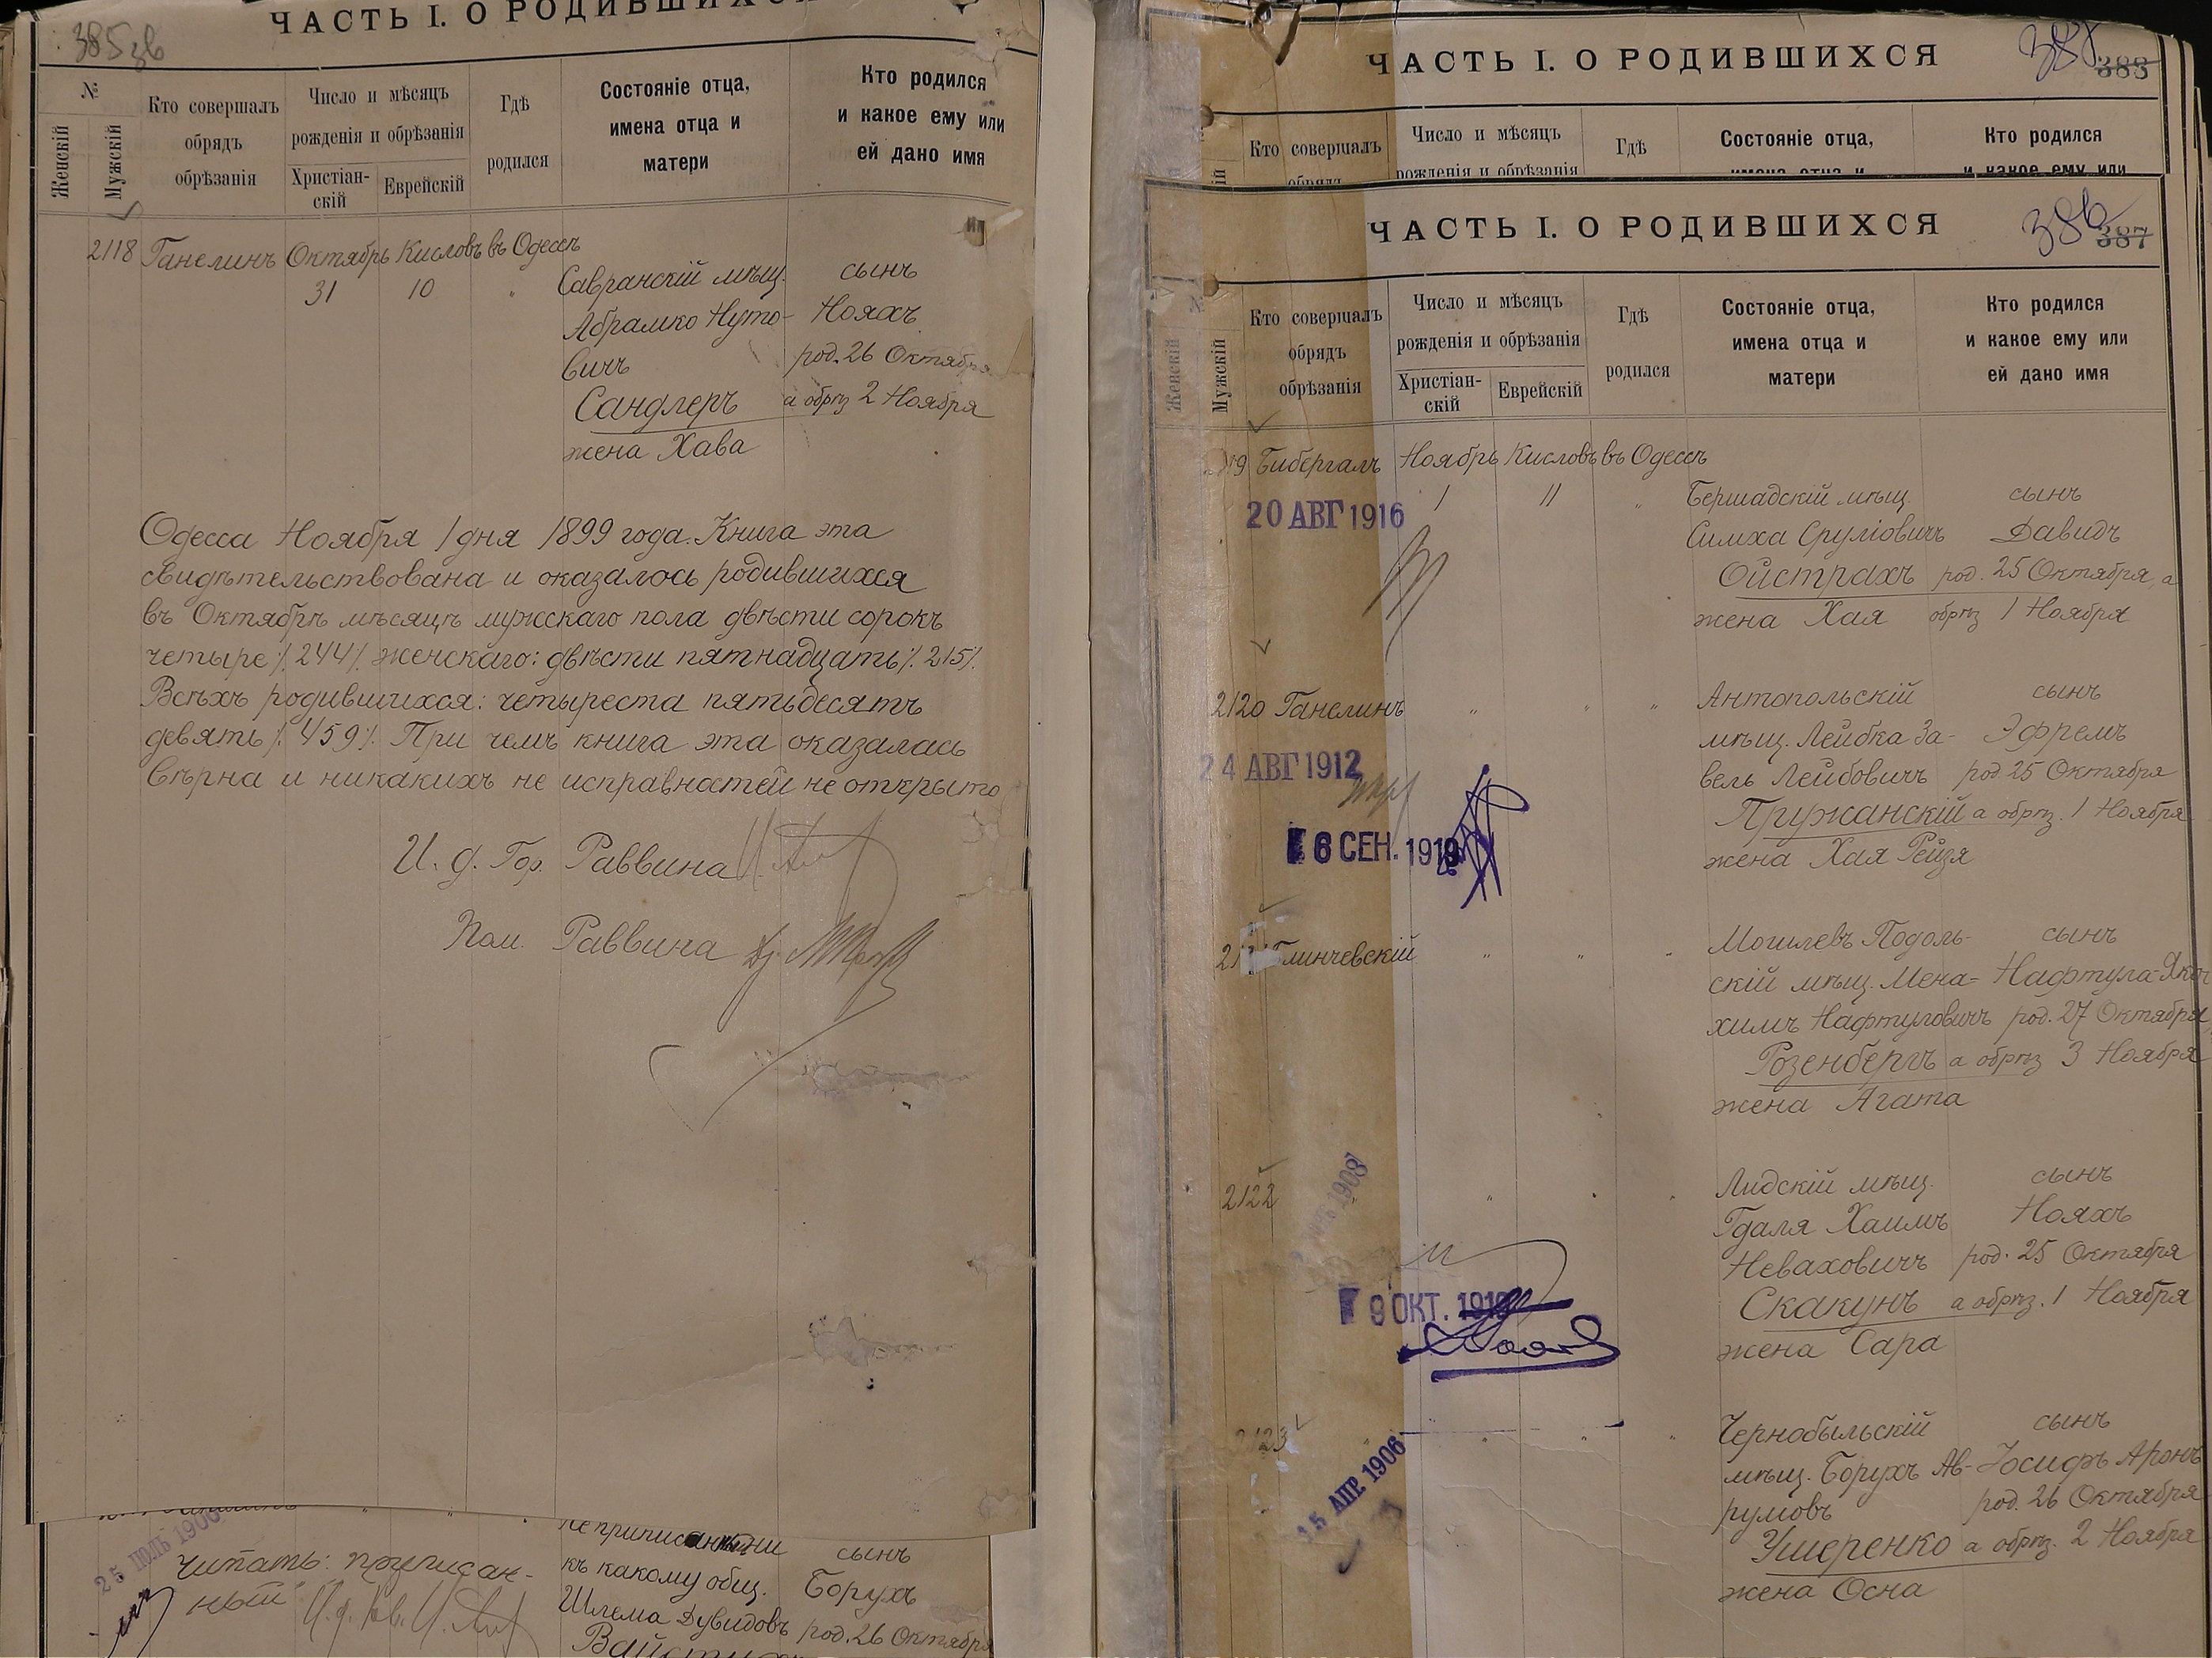 385 зв
ЧАСТЬ I. О РОДИВШИХСЯ
№
Женскій
Мужскій
Кто совершалъ
обрядъ
обрѣзанія
Число и мѣсяцъ
рожденія и обрѣзанія
Христіан-
скій
Еврейскій
Гдѣ
родился
Состояніе отца,
имена отца и
матери
Кто родился
и какое ему или
ей дано имя
2118 Ганелинъ Октябрь Кисловъ въ Одессѣ
31 10 "
Савранскій мѣщ.
Абрамко Нуто-
вичъ
Сандлеръ
жена Хава
сынъ
Нояхъ
род. 26 Октября
а обрѣз 2 Ноября
Одесса Ноября 1 дня 1899 года. Книга эта
свидѣтельствована и оказалось родившихся
въ Октябрѣ мѣсяцѣ мужскаго пола двѣсти сорокъ
четыре /. 244 /. женскаго: двѣсти пятнадцать /. 215 /.
Всѣхъ родившихся: четыреста пятьдесятъ
девять /. 459 /. При чемъ книга эта оказалась
вѣрна и никакихъ не исправностей не открыто
И. д. Гор. Раввина
Пом. Раввина
25 ІЮЛЬ 1906
читать: приписан-
ный
къ какому общ.
Шлема Дувидовъ
сынъ
Борухъ
род. 26 Октября
ЧАСТЬ I. О РОДИВШИХСЯ
388
Кто совершалъ
обрядъ
Число и мѣсяцъ
рожденія и обрѣзанія
Гдѣ
Состояніе отца,
имена отца и
Кто родился
и какое ему или
ЧАСТЬ I. О РОДИВШИХСЯ
386
387
Женскій
Мужскій
Кто совершалъ
обрядъ
обрѣзанія
Число и мѣсяцъ
рожденія и обрѣзанія
Христіан-
скій
Еврейскій
Гдѣ
родился
Состояніе отца,
имена отца и
матери
Кто родился
и какое ему или
ей дано имя
Бибергалъ Ноябрь Кисловъ въ Одессѣ
1 11 "
20 АВГ 1916
Бершадскій мѣщ.
Симха Сруліовичъ
Ойстрахъ
жена Хая
сынъ
Давидъ
род. 25 Октября, а
обрѣз 1 Ноября
2120 Ганелинъ " " "
24 АВГ 1912
6 СЕН. 1919
Антопольскій
мѣщ. Лейбка За-
вель Лейбовичъ
Пружанскій
жена Хая Рейзя
сынъ
Эфремъ
род 25 Октября
а обрѣз. 1 Ноября
Глинчевскій " " "
Могилевъ Подоль-
скій мѣщ. Мена-
химъ Нафтуловичъ
Розенбергъ
жена Агата
сынъ
Нафтула-Яков
род. 27 Октября
а обрѣз 3 Ноября
2122 " " " "
1908
9 ОКТ.
Лидскій мѣщ.
Гдаля Хаимъ
Неваховичъ
Скакунъ
жена Сара
сынъ
Нояхъ
род. 25 Октября
а обрѣз. 1 Ноября
2123 " " " "
15 АПР 1906
Чернобыльскій
мѣщ. Борухъ Ав-
румовъ
Ушеренко
жена Осна
сынъ
Іосифъ Аронъ
род. 26 Октября
а обрѣз. 2 Ноября